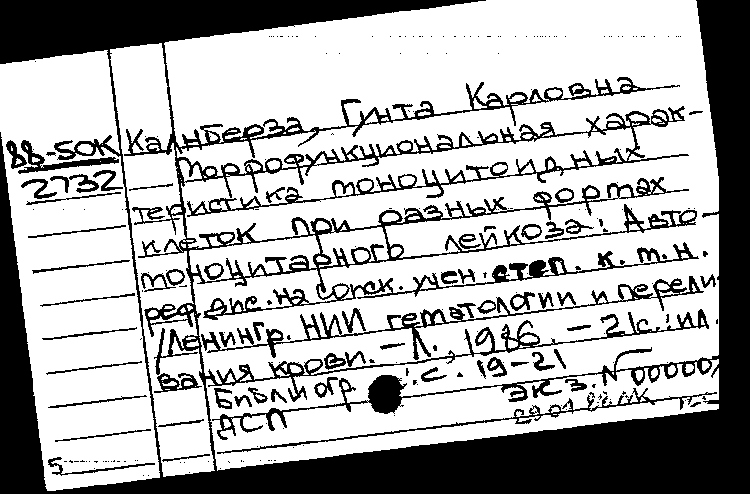 88-50К
2732
Калнберза, Гинта Карловна
Морфофункциональная харак-
теристика моноцитоидных
клеток при разных формах
моноцитарного лейкоза: Авто-
реф. дис. на соиск. учен. степ. к. м. н.
/Ленингр. НИИ гематологии и перели-
вания крови. – Л., 1986. – 21с.: ил.
Библиогр.: с. 19-21
Экз. № 000007
АСП
5